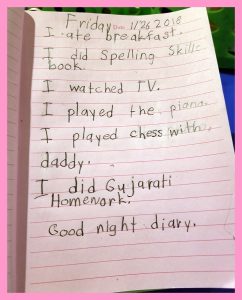 Friday Date: 1/26 2018
I ate breakfast.
I did Spelling Skills
book.
I watched TV.
I played the piano.
I played chess with
daddy.
I did Gujarati
Homework.
Good night diary.